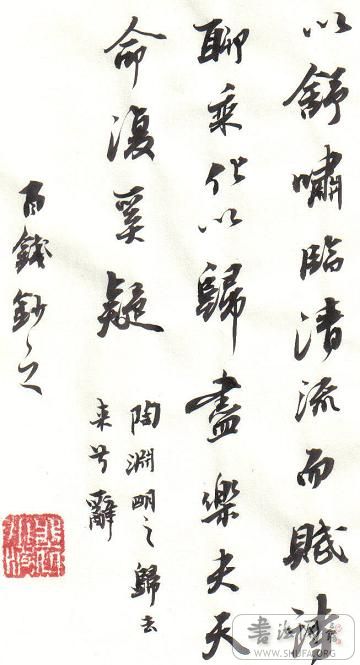 以舒嘯臨清流而賦詩
聊乘化以歸盡樂夫天
命復奚疑
陶淵明之歸去
来兮辭
WWW.SHUFA.ORG